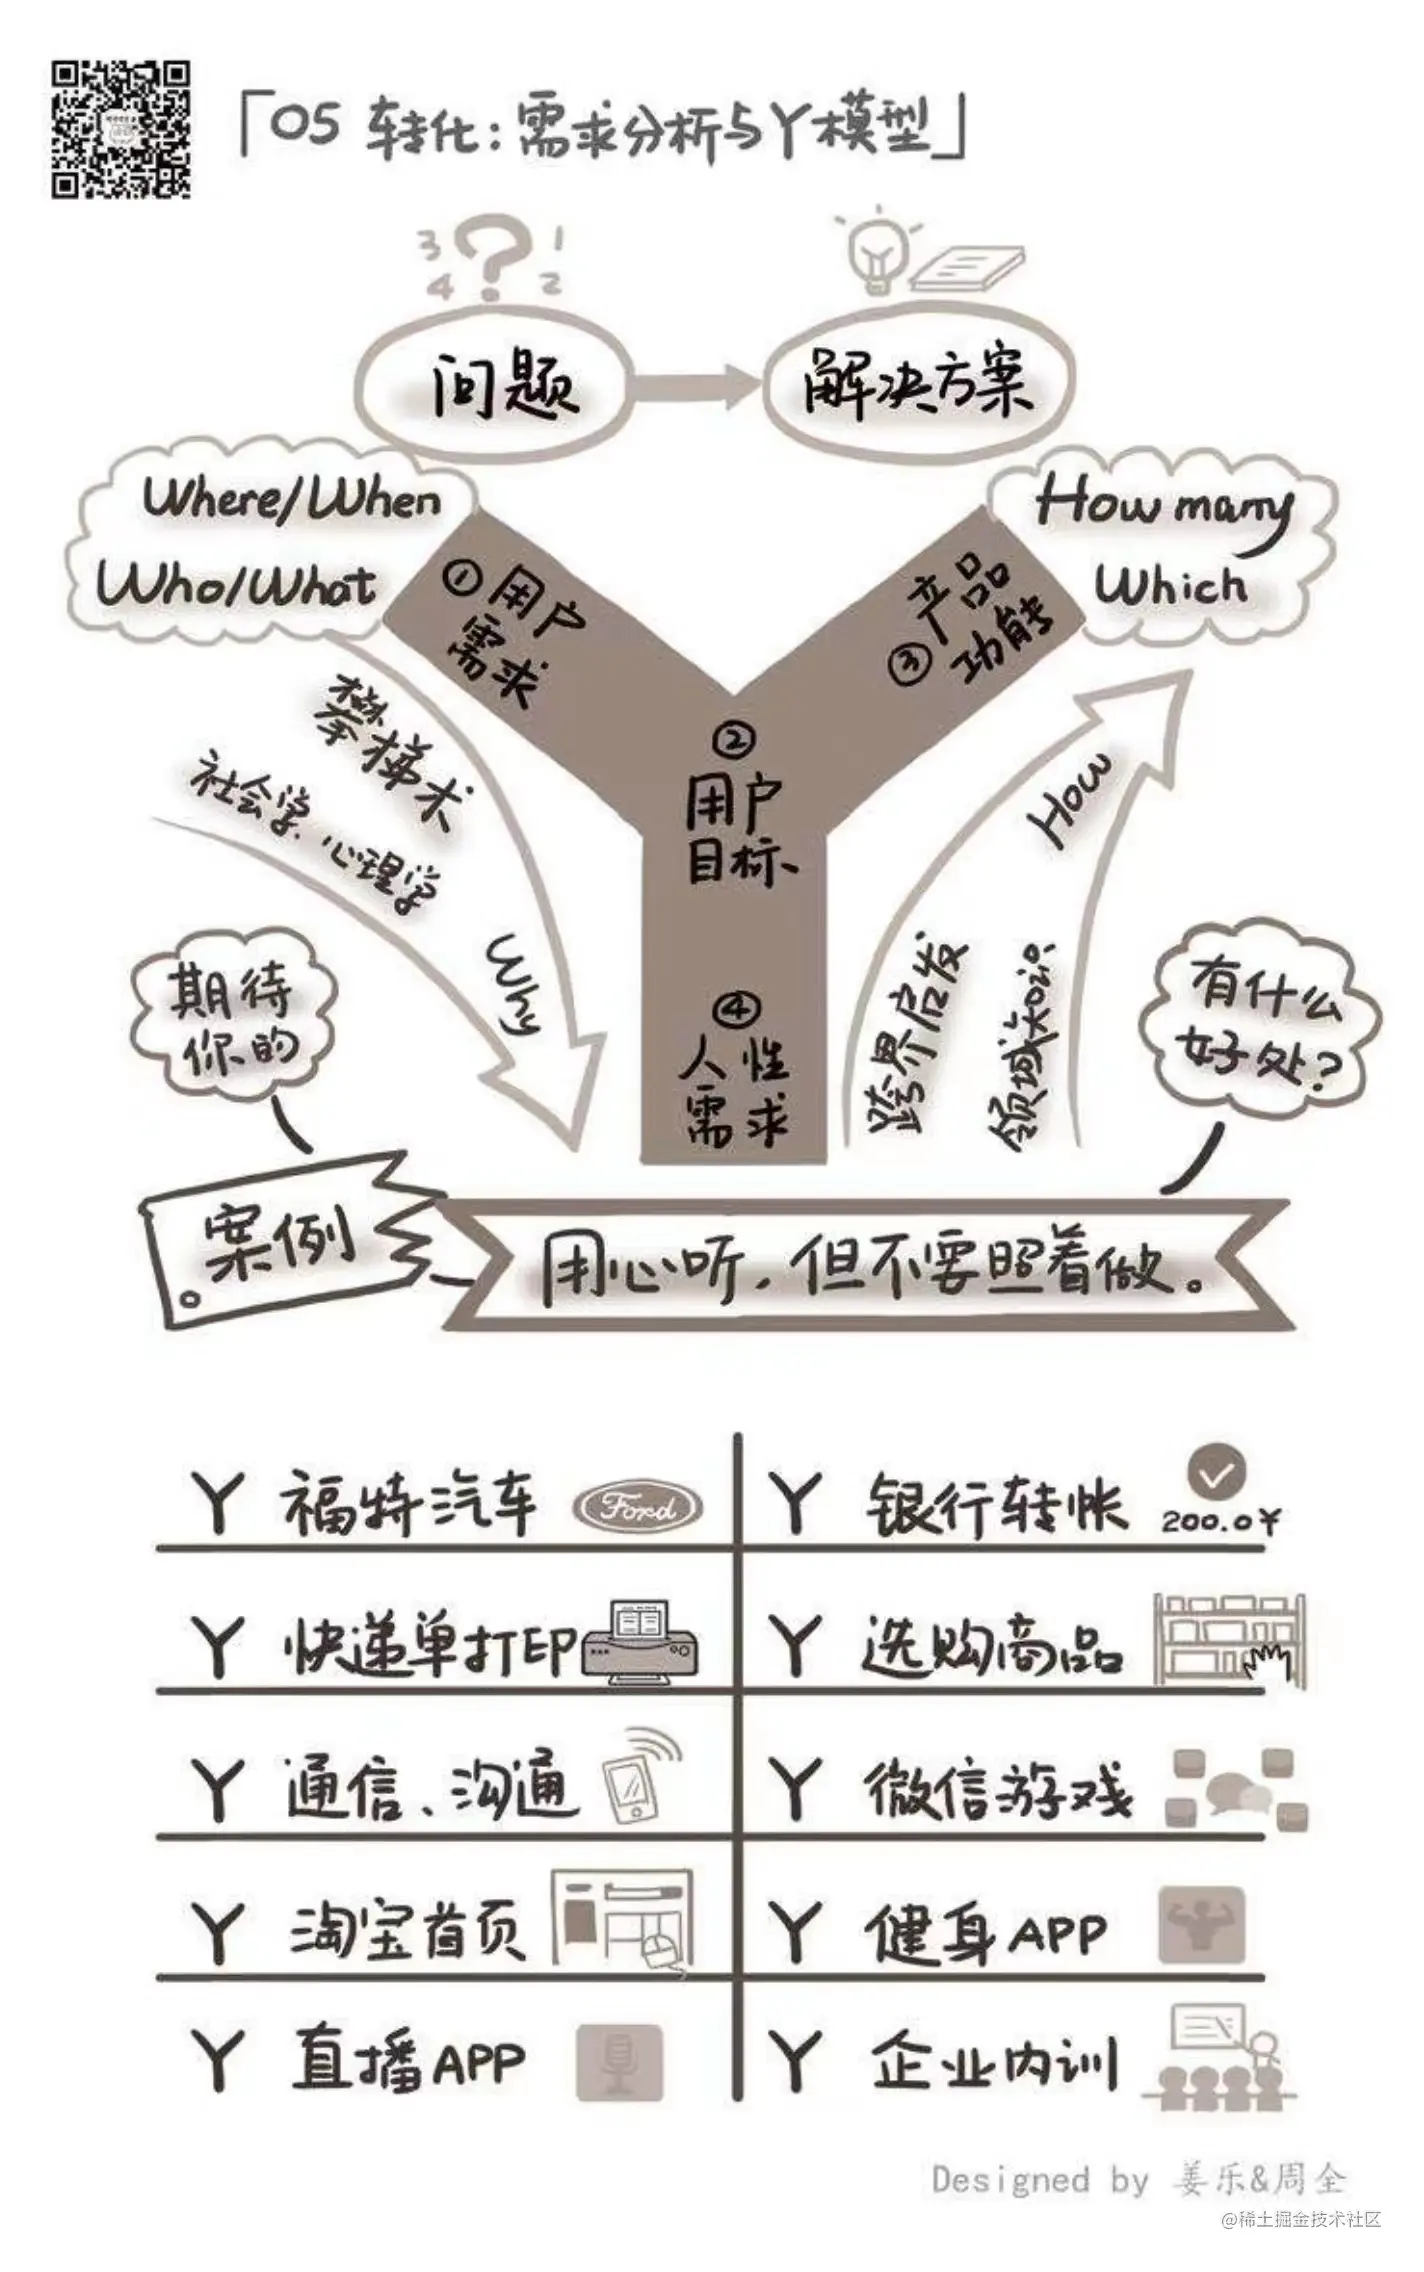 「05 转化:需求分析与Y模型」
3 ? 1
4 2
问题
解决方案
Where/When
Who/What
How many
Which
① 用户
需求
③ 产品
功能
②
用户
目标
④
人性
需求
攀梯术
社会学、心理学
Why
How
跨界启发
领域知识
期待
你的
有什么
好处?
案例
用心听,但不要照着做。
Y 福特汽车 Ford
Y 银行转帐 200.0¥
Y 快递单打印
Y 选购商品
Y 通信、沟通
Y 微信游戏
Y 淘宝首页
Y 健身APP
Y 直播APP
Y 企业内训
Designed by 姜乐&周全
@稀土掘金技术社区